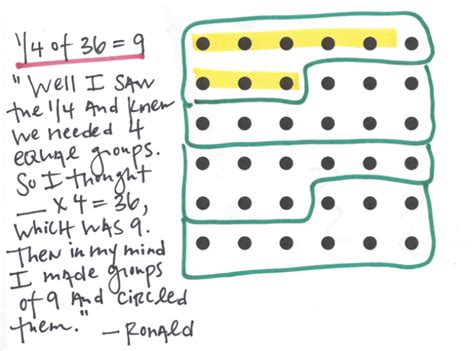 1/4 of 36 = 9
"Well I saw
the 1/4 and knew
we needed 4
equal groups.
So I thought
__ x 4 = 36,
which was 9.
Then in my mind
I made groups
of 9 and circled
them."
- Ronald